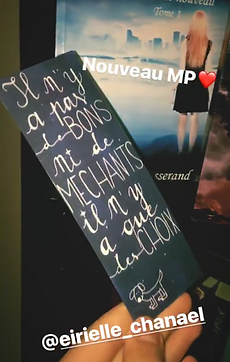 nouveau
Tome 1
Nouveau MP❤️
Il n'y
a pas
de BONS
ni de
MÉCHANTS
il n'y
a que
des CHOIX
sserand
@eirielle_chanael